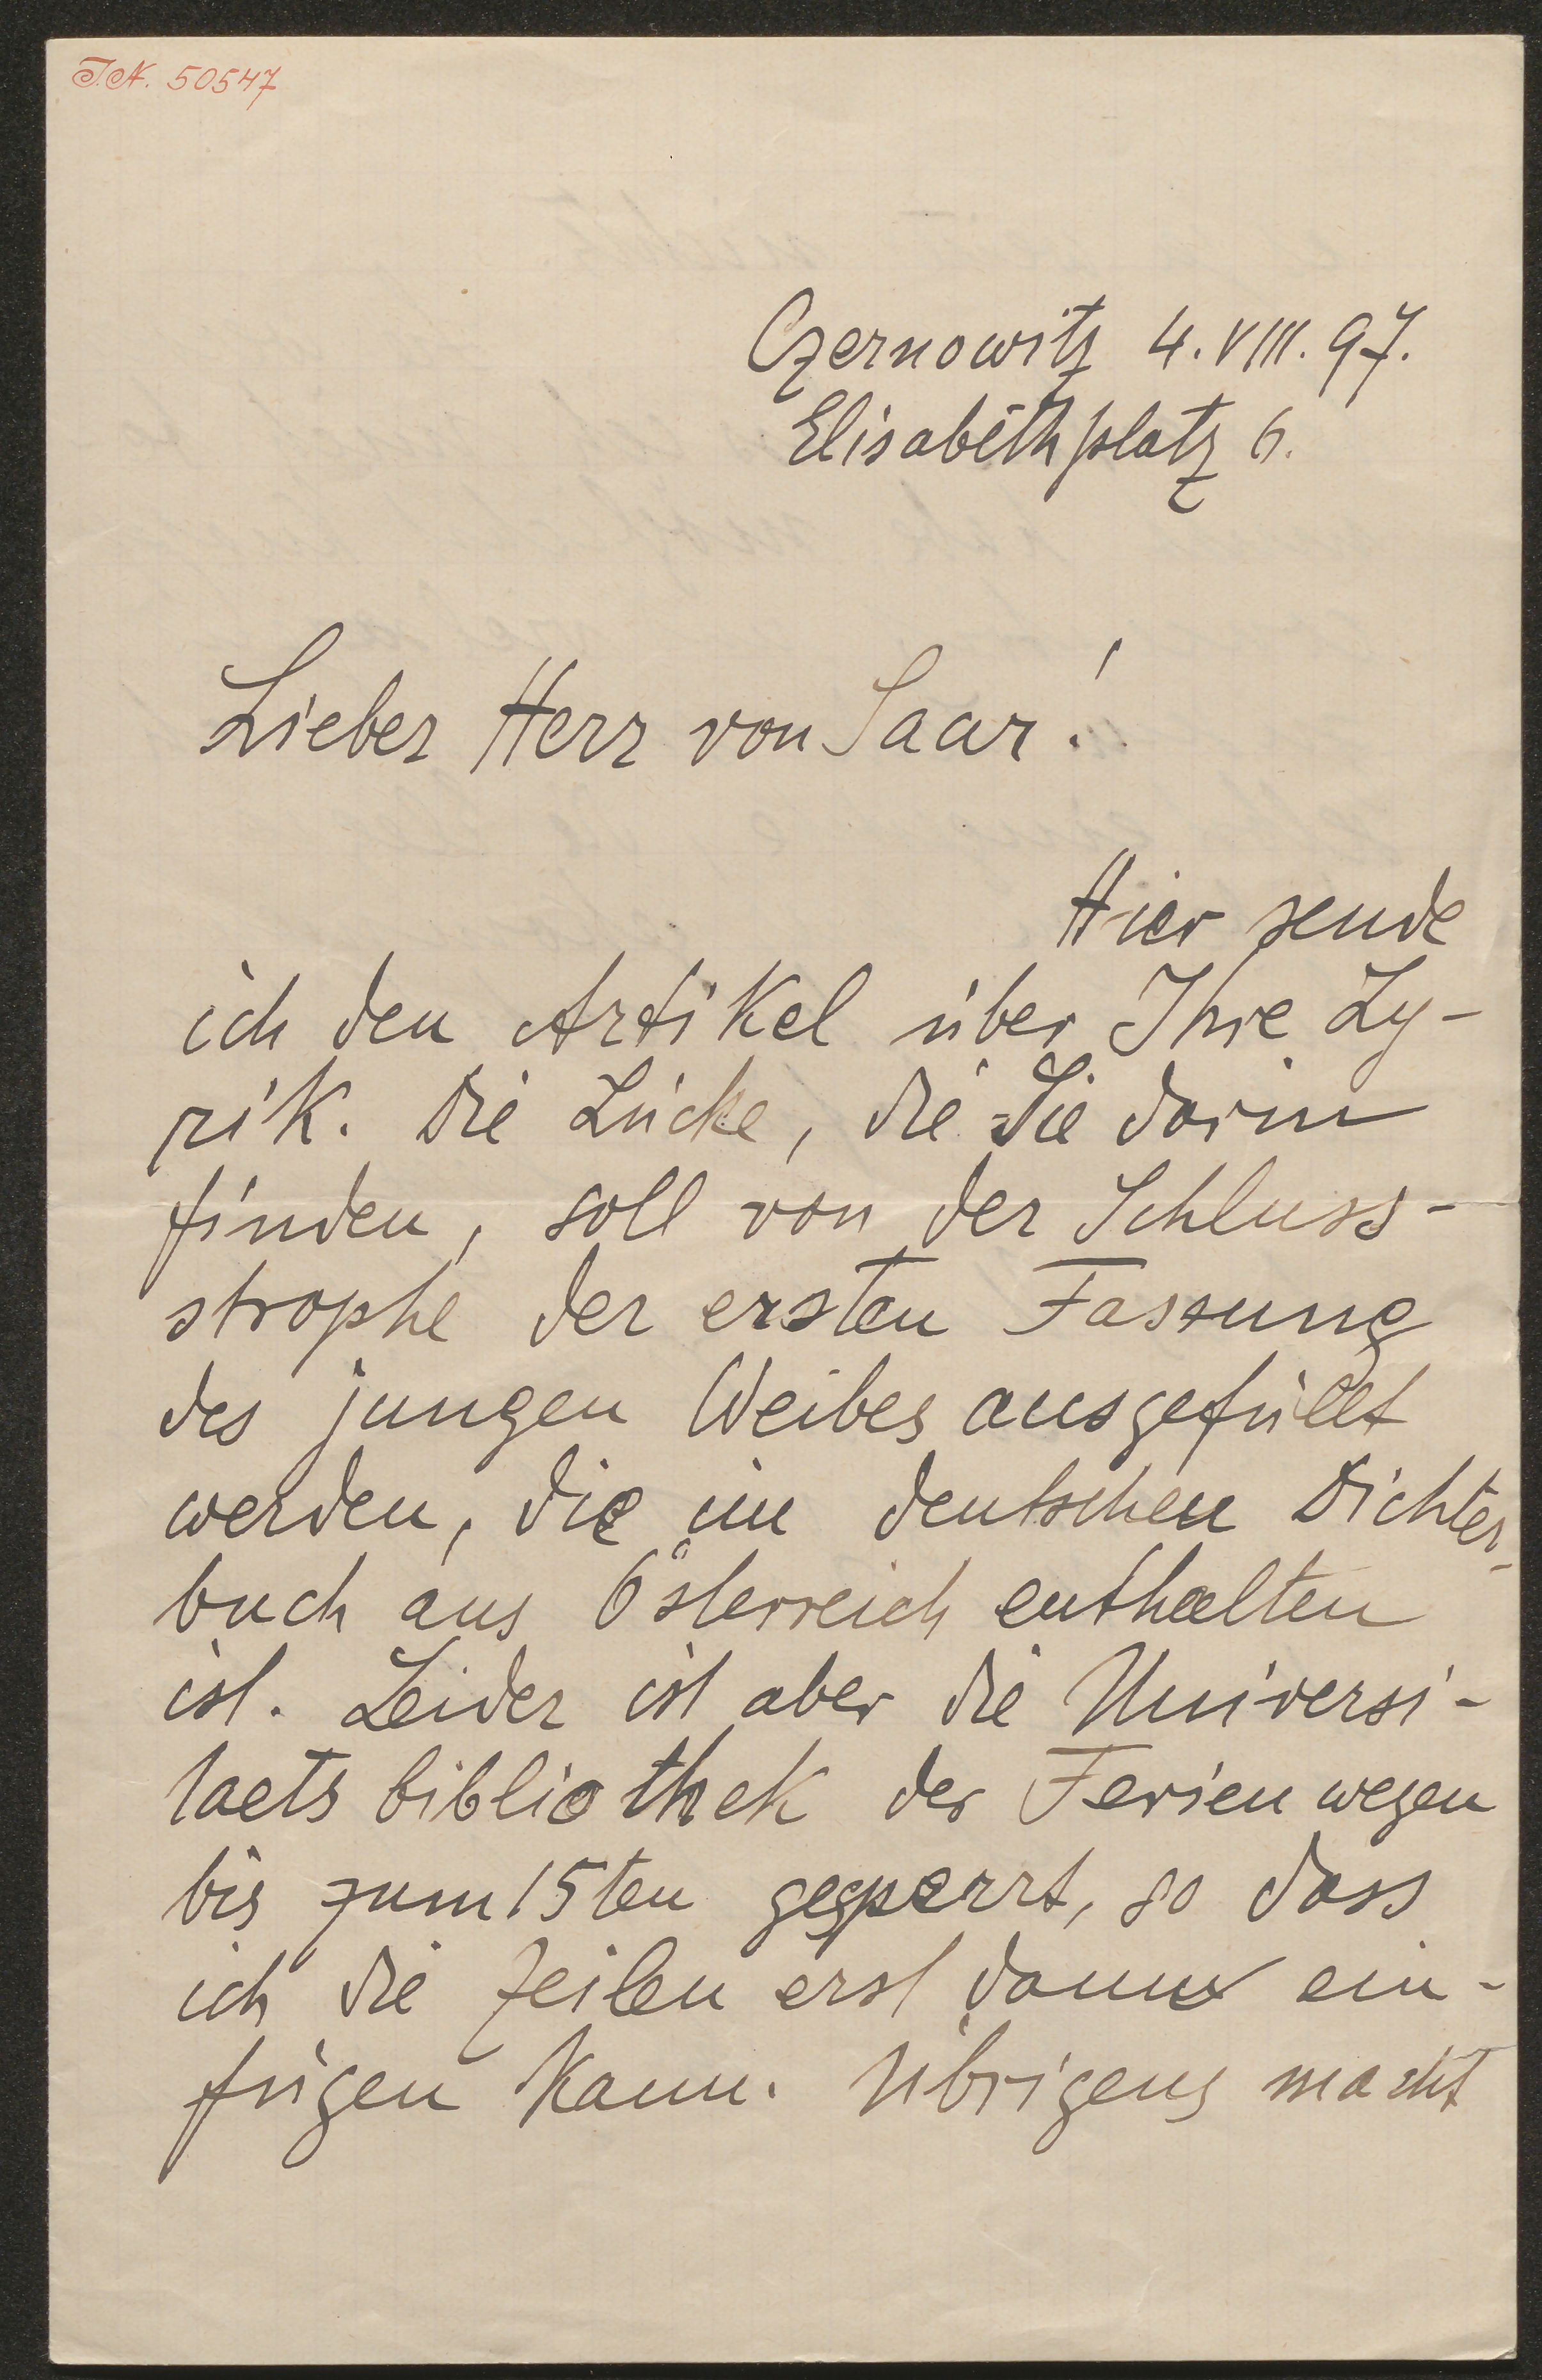 I.N. 50547
Czernowitz 4.VIII.97.
Elisabethplatz 6.
Lieber Herr von Saar!
Hier sende
ich den Artikel über Ihre Ly-
rik. Die Lücke, die Sie darin
finden, soll von der Schluss-
strophe der ersten Fassung
des jungen Weibes ausgefüllt
werden, die im deutschen Dichter-
buch aus Österreich enthalten
ist. Leider ist aber die Universi-
taets bibliothek der Ferien wegen
bis zum 15ten gesperrt, so dass
ich die Zeilen erst dann ein-
fügen kann. Übrigens macht